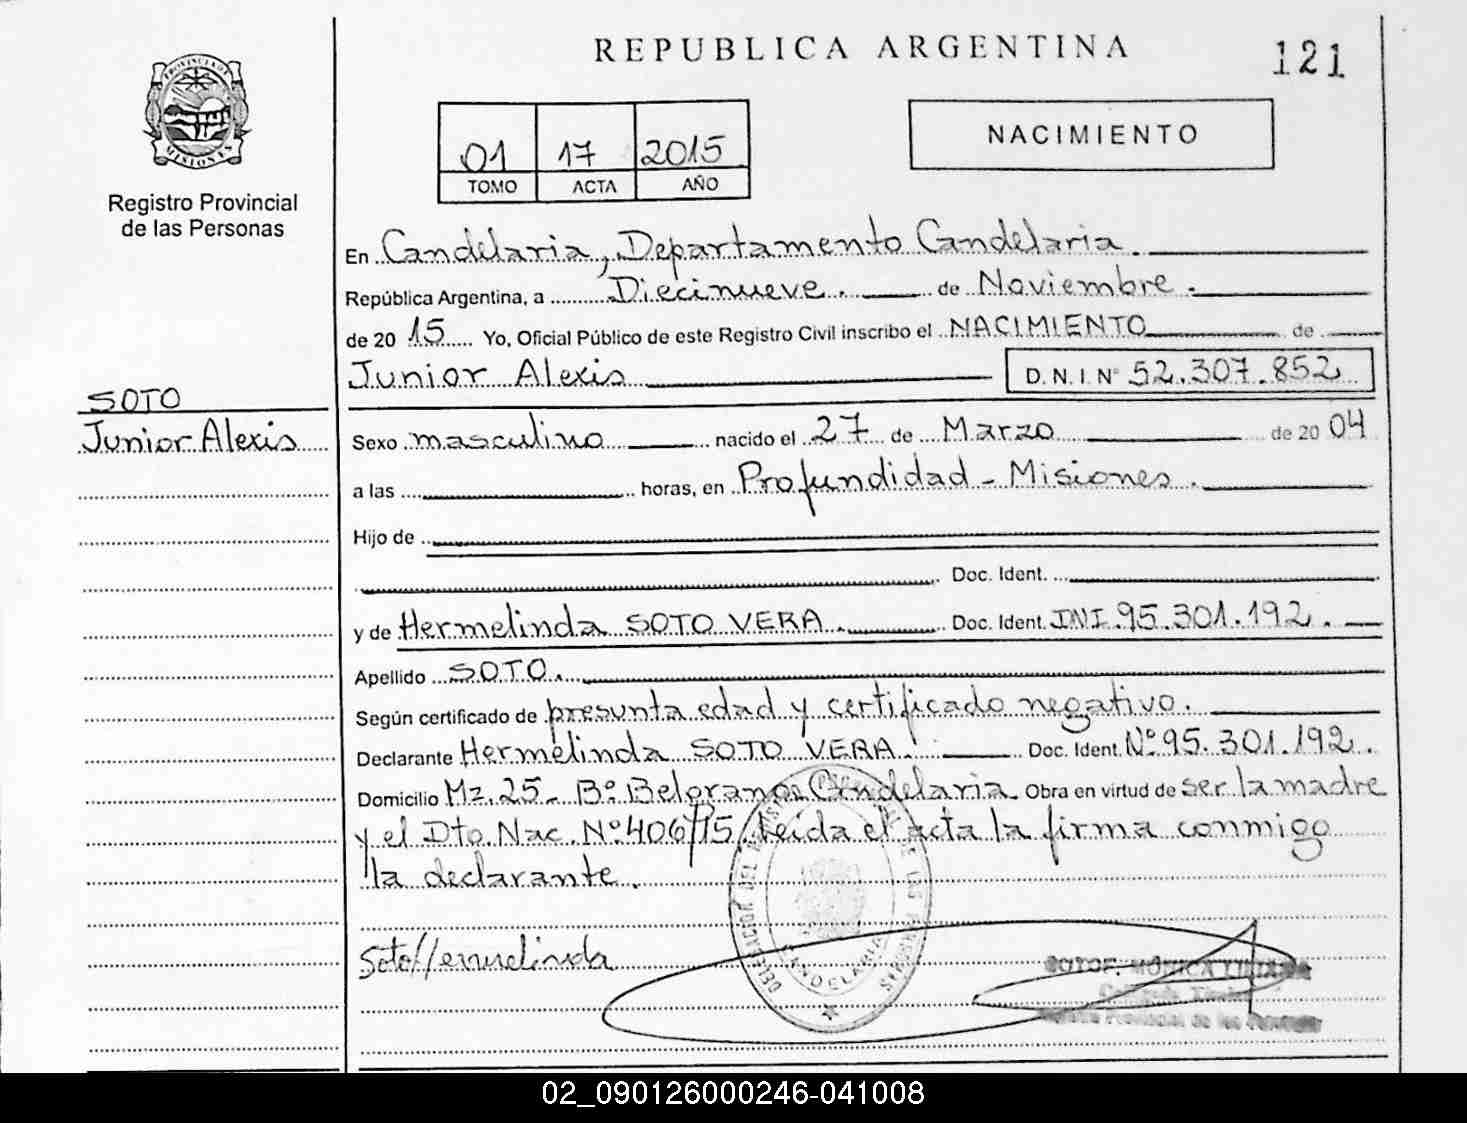 REPUBLICA ARGENTINA
121
PROVINCIA DE MISIONES
Registro Provincial
de las Personas
01 17 2015
TOMO ACTA AÑO
NACIMIENTO
En Candelaria, Departamento Candelaria.
República Argentina, a Diecinueve. de Noviembre.
de 2015 Yo, Oficial Público de este Registro Civil inscribo el NACIMIENTO de
Junior Alexis D.N.I. Nº 52.307.852
SOTO
Junior Alexis
Sexo masculino nacido el 27 de Marzo de 2004
a las horas, en Profundidad - Misiones.
Hijo de
Doc. Ident.
y de Hermelinda SOTO VERA. Doc. Ident. DNI 95.301.192.
Apellido SOTO.
Según certificado de presunta edad y certificado negativo.
Declarante Hermelinda SOTO VERA. Doc. Ident. Nº 95.301.192.
Domicilio Mz. 25 - Bº Belgrano Candelaria Obra en virtud de ser la madre
y el Dto. Nac. Nº 406/15 Leida el acta la firma conmigo
la declarante.
Soto Hermelinda
DELEGACION DEL DE LAS PERSONAS
CANDELARIA
MONICA
Registro Provincial de las Personas
02_090126000246-041008